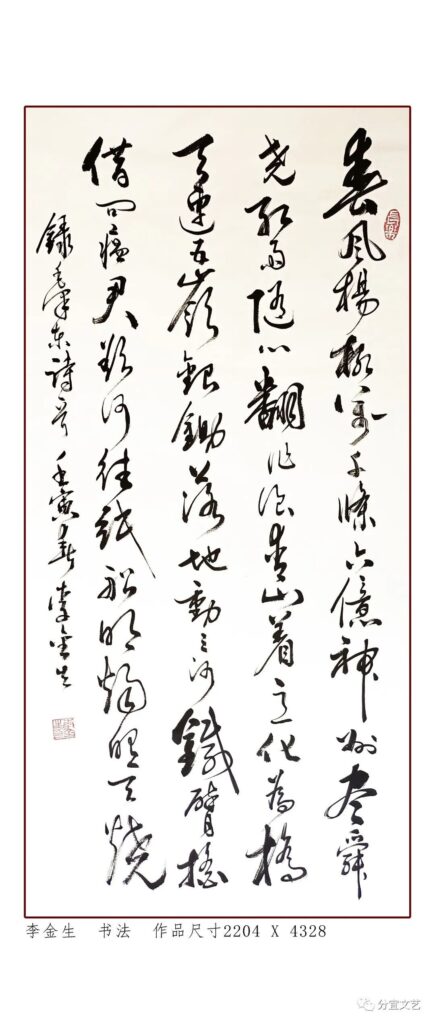 春風楊柳万千條六億神州尽舜
尧紅雨随心翻作浪青山着意化為橋
天連五嶺銀鋤落地動三河鐵臂摇
借问瘟君欲何往紙船明燭照天燒
錄毛澤東詩 壬寅春李金生
李金生 书法 作品尺寸2204 X 4328
分宜文艺